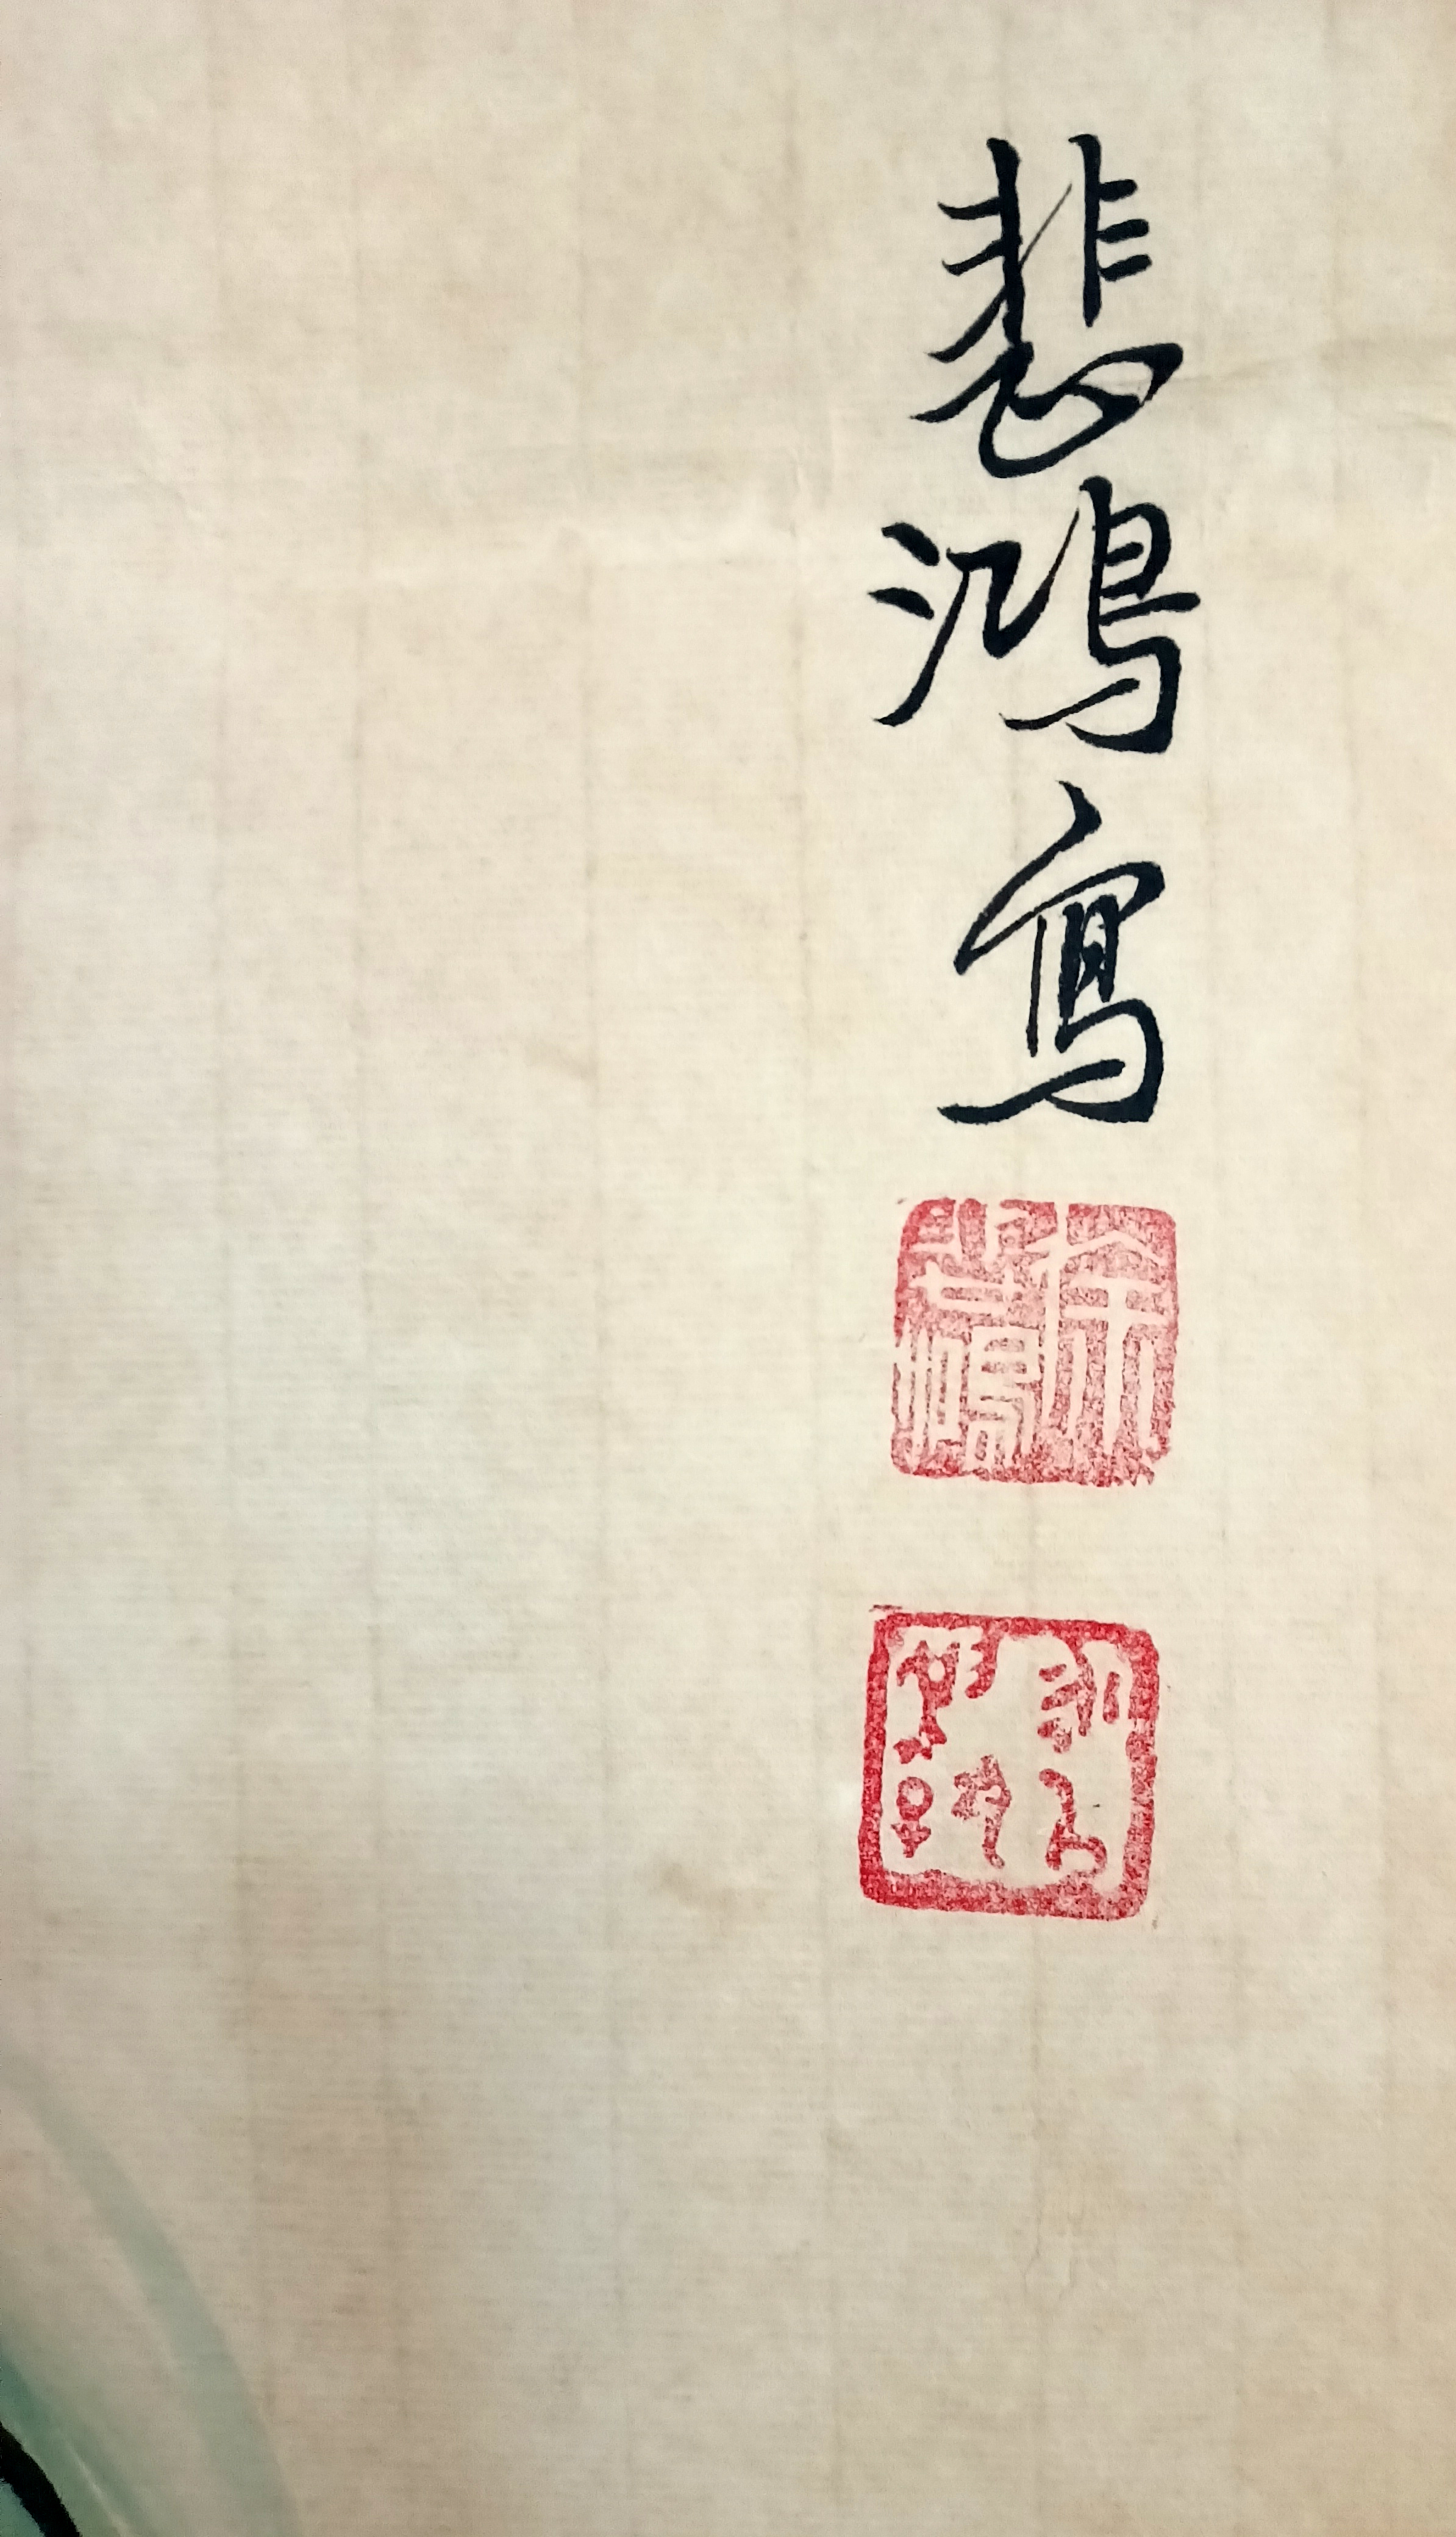 悲鴻寫
徐悲鴻